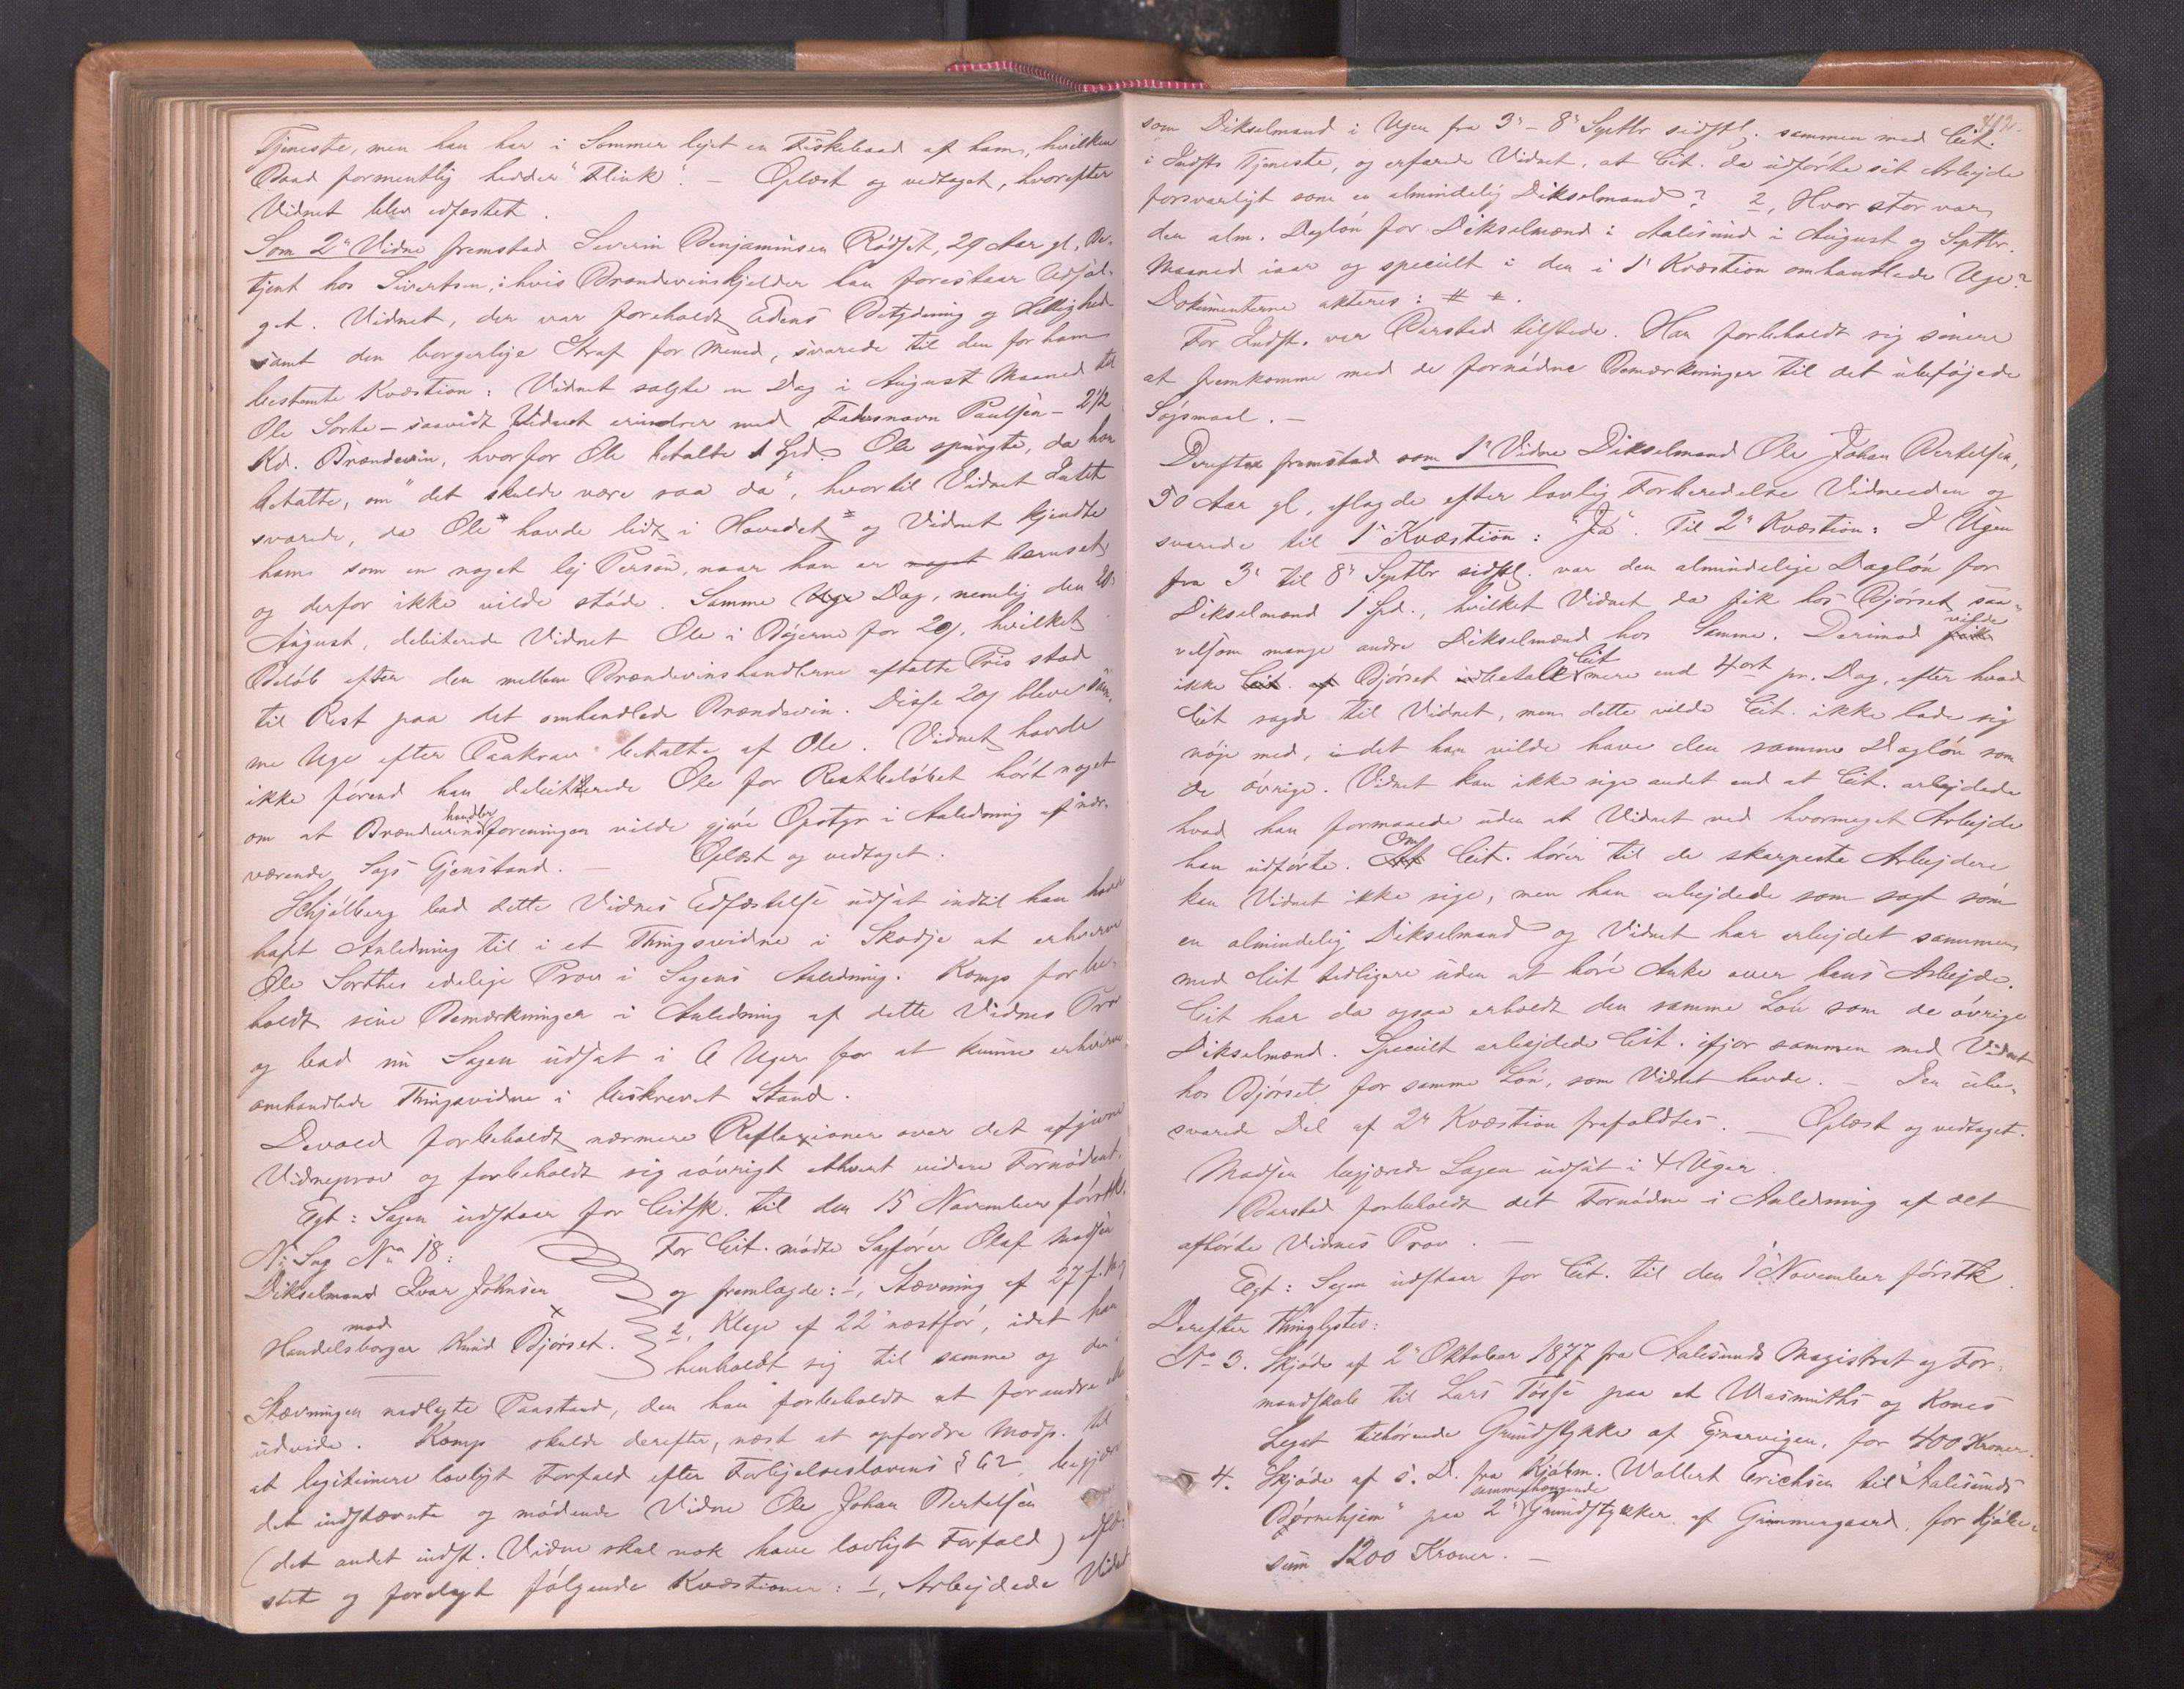 Tjeneste, men han har i Sommer lejet en Fiskebaad af ham, hvilken
Baad formentlig hedder "Flink". — Oplæst og vedtaget, hvorefter
Vidnet blev edfæstet.
Som 2' Vidne fremstod Severin Benjaminsen Rødset, 29 Aar gl, Be-
tjent hos Sivertsen, i hvis Brændevinskjelder han forestaar Udsal-
get. Vidnet, der var foreholdt Edens Betydning og Hellighed
samt den borgerlige Straf for Mened, svarede til den for ham
bestemte Kvæstion: Vidnet solgte en Dag i August Maaned til
Ole Sorte – saavidt Vidnet erindrer med Fadersnavn Paulsen – 2 1/2
Kd. Brændevin, hvorfor Ole betalte 1 Spd. Ole spurgte, da han
betalte, om "det skulde være saa da", hvortil Vidnet Intet
svarede, da Ole havde lidt i Hovedet og Vidnet kjendte
ham som en noget lej Person, naar han er noget beruset
og derfor ikke vilde støde. Samme Uge Dag, nemlig den
August, debiterede Vidnet Ole i Bøgerne for 20 β, hvilket
Beløb efter den mellem Brændevinshandlerne aftalte Pris stod
til Rest paa det omhandlede Brændevin. Disse 20 β bleve sam-
me Uge efter Paakrav betalte af Ole. Vidnet havde
ikke førend han debiterede Ole for Restbeløbet hørt noget
om at Brændevinshandlerforeningen vilde gjøre Opstyr i Anledning af nær-
værende Sags Gjenstand. — Oplæst og vedtaget.
Schjølberg bad dette Vidnes Edfæstelse udsat indtil han havde
havt Anledning til i et Thingsvidne i Skodje at erhverve
Ole Sorthes edelige Prov i Sagens Anledning. Komp forbe-
holdt sine Bemærkninger i Anledning af dette Vidnes Prov
og bad nu Sagen udsat i 6 Uger for at kunne erhverve
omhandlede Thingsvidne i beskrevet Stand.
Devold forbeholdt nærmere Reflexioner over det afgivne
Vidneprov og forbeholdt sig iøvrigt ethvert videre Fornødent.
Egt: Sagen udstaar for Citsk. til den 15 November førstk.
Ny Sag No 18: For Cit. mødte Sagfører Olaf Madsen
Dikselmand Ivar Johnsen og fremlagde: 1, Stævning af 27 f. M. og
mod 2, Klage af 22' næstfør, idet han
Handelsborger Knud Bjørset. henholdt sig til samme og den i
Stævningen nedlagte Paastand, den han forbeholdt at forandre eller
udvide. Komp skulde derefter, næst at opfordre Modp. til
at legitimere lovligt Forfald efter Forligelseslovens § 62, begjære
det indstævnte og mødende Vidne Ole Johan Bertelsen
(det andet indst. Vidne skal nok have lovligt Forfald) edfæ-
stet og forelagt følgende Kvæstioner: 1, Arbejdede Vidnet
412.
som Dikselmand i Ugen fra 3' – 8' Septbr sidstl. sammen med Cit.
i Indsts Tjeneste, og erfarede Vidnet, at Cit. da udførte sit Arbejde
forsvarligt som en almindelig Dikselmand? 2, Hvor stor var
den alm. Dagløn for Dikselmænd i Aalesund i August og Septbr.
Maaned iaar og specielt i den i 1' Kvæstion omhandlede Uge?
Dokumenterne akteres: # #.
For Indst. var Barstad tilstede. Han forbeholdt sig senere
at fremkomme med de fornødne Bemærkninger til det ubeføjede
Søgsmaal. —
Derefter fremstod som 1' Vidne Dikselmand Ole Johan Bertelsen,
50 Aar gl, aflagde efter lovlig Forberedelse Vidneeden og
svarede til 1' Kvæstion: "Ja". Til 2' Kvæstion: I Ugen
fra 3' til 8' Septbr sidstl. var den almindelige Dagløn for
Dikselmænd 1 Spd., hvilket Vidnet da fik hos Bjørset saa-
velsom mange andre Dikselmænd hos Samme. Derimod fik vilde
ikke Cit. af Bjørset udbetale Cit mere end 4 ort pr. Dag, efter hvad
Cit sagde til Vidnet, men dette vilde Cit. ikke lade sig
nøje med, idet han vilde have den samme Dagløn som
de øvrige. Vidnet kan ikke sige andet end at Cit. arbejdede
hvad han formaaede uden at Vidnet ved hvormeget Arbejde
han udførte. Af Om Cit. hører til de skarpeste Arbejdere
kan Vidnet ikke sige, men han arbejdede som sagt som
en almindelig Dikselmand og Vidnet har arbejdet sammen
med Cit tidligere uden at høre Anke over hans Arbejde.
Cit har da ogsaa erholdt den samme Løn som de øvrige
Dikselmænd. Specielt arbejdede Cit. ifjor sammen med Vidnet
hos Bjørset for samme Løn, som Vidnet havde. — Den ube-
svarede Del af 2' Kvæstion frafaldtes. — Oplæst og vedtaget.
Madsen begjærede Sagen udsat i 4 Uger.
Barstad forbeholdt det Fornødne i Anledning af det
afhørte Vidnes Prov. —
Egt: Sagen udstaar for Cit. til den 1' November førstk.
Derefter Thinglystes:
No 3. Skjøde af 2' Oktober 1877 fra Aalesunds Magistrat og For-
mandskab til Lars Tøsse paa et Wasmuths og Kones
Legat tilhørende Grundstykke af Ejnarvigen, for 400 Kroner.
" 4. Skjøde af s. D. fra Kjøbm. Wollert Erichsen til "Aalesunds
Børnehjem" paa 2' sammenhængende Grundstykker af Gimmesgaard, for Kjøbe-
sum 1200 Kroner. —